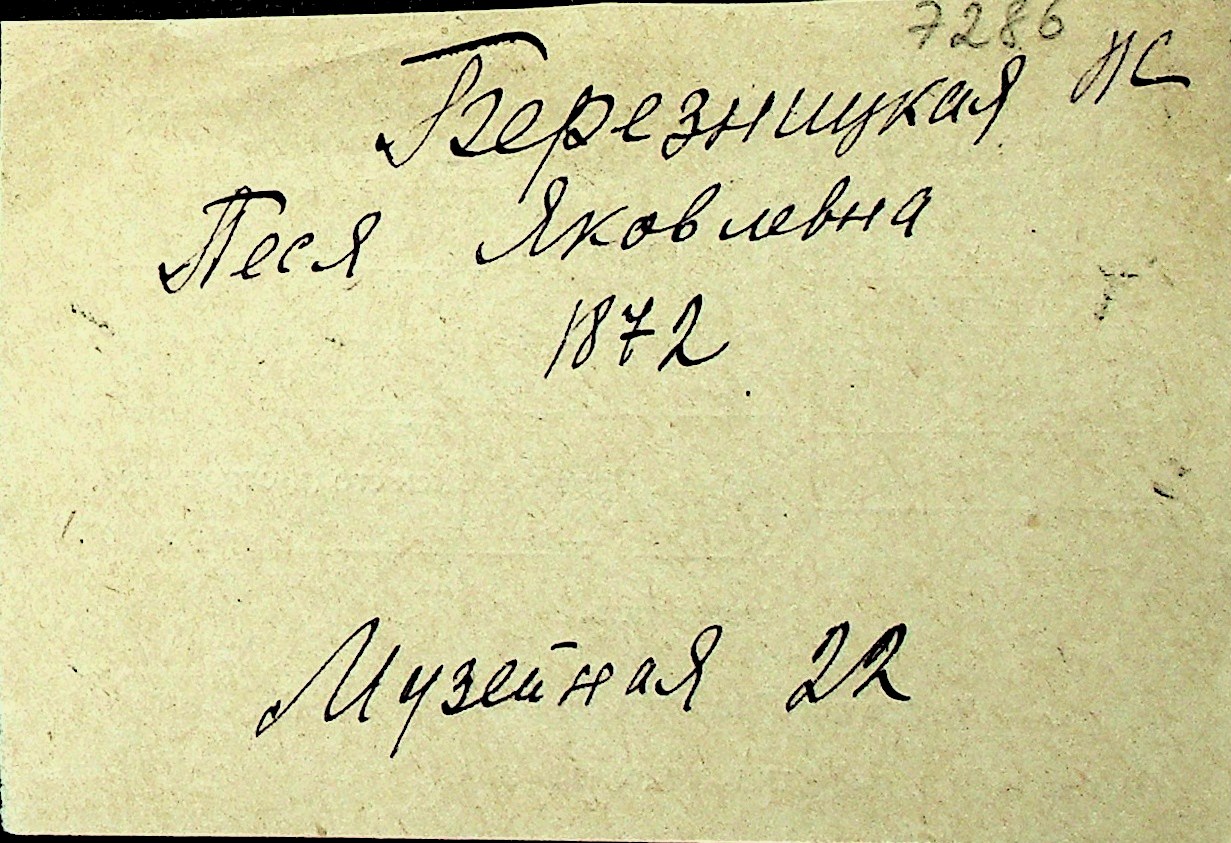 7286
Березницкая ЖС
Песя Яковлевна
1872
Музейная 22